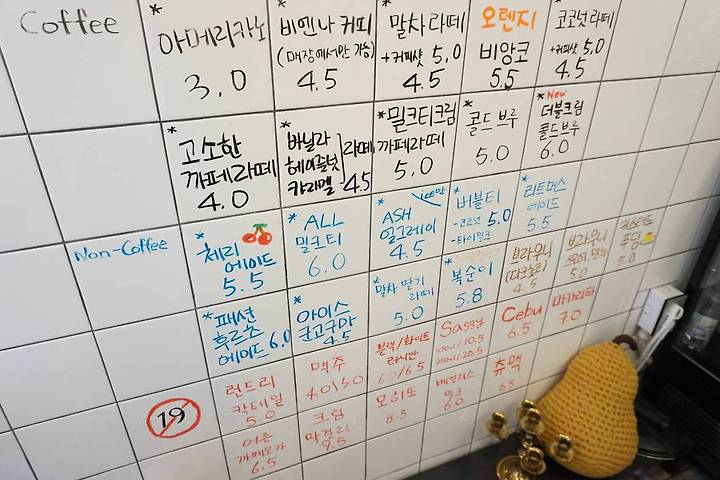 Coffee
* 아메리카노
3.0
* 비엔나 커피
(매장에서만 가능)
4.5
* 말차라떼
+커피샷 5.0
4.5
오렌지
비앙코
5.5
* 코코넛라떼
+커피샷 5.0
4.5
* 고소한
까페라떼
4.0
* 바닐라
헤이즐넛
카라멜
라떼
4.5
* 밀크티크림
까페라떼
5.0
* 콜드브루
5.0
* New
더블크림
콜드브루
6.0
Non-Coffee
* 체리
에이드
5.5
* ALL
밀크티
6.0
* ice만
ASH
얼그레이
4.5
* 버블티
-코코넛 5.0
-타이밀크
* 리트머스
에이드
5.5
* 패션
후르츠
에이드 6.0
* 아이스
군고구마
4.5
말차 딸기
라떼
5.0
복순이
5.8
브라우니
4.5
브라우니
5.0
푸딩
5.0
19
런드리
칵테일
5.0
맥주
4.0/5.0
블랙/화이트
러시안
6.0/6.5
Sassy
10.5
20.5
Cebu
6.5
마가리타
7.0
어른
까페모카
6.5
크림
막걸리
9.5
모히또
8.5
베일리스
밀크
6.0
츄맥
6.5